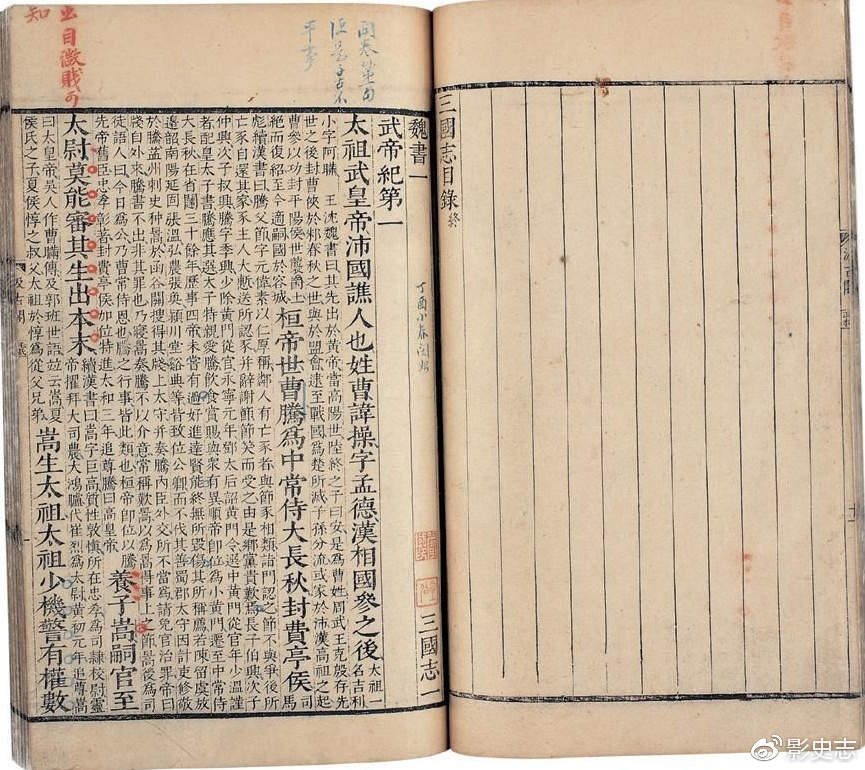 三國志目錄終
魏書一
三國志一
武帝紀第一
太祖武皇帝沛國譙人也姓曹諱操字孟德漢相國參之後太祖一名吉利
小字阿瞞 王沈魏書曰其先出於黃帝當高陽世陸終之子曰安是為曹姓周武王克殷存先
世之後封曹俠於邾春秋之世與於盟會逮至戰國為楚所滅子孫分流或家於沛漢高祖之起
曹參以功封平陽侯世襲爵土
絕而復紹至今適嗣國於容城
桓帝世曹騰為中常侍大長秋封費亭侯司馬
彪續漢書曰騰父節字元偉素以仁厚稱鄰人有亡豕者與節豕相類詣門認之節不與爭後所
亡豕自還其家豕主人大慚送所認豕并辭謝節節笑而受之由是鄉黨貴歎焉長子伯興次子
仲興次子叔興騰字季興少除黃門從官永寧元年鄧太后詔黃門令選中黃門從官年少溫謹
者配皇太子書騰應其選太子特親愛騰飲食賞賜與衆有異順帝卽位為小黃門遷至中常侍
大長秋在省闥三十餘年歷事四帝未嘗有過好進達賢能終無所毀傷其所稱薦若陳留虞放
邊韶南陽延固張溫弘農張奐潁川堂谿典等皆致位公卿而不伐其善蜀郡太守因計吏修敬
於騰益州刺史种暠於函谷關搜得其牋上太守并奏騰內臣外交所不當為請免官治罪帝曰
牋自外來騰書不出非其罪也乃寢暠奏騰不以介意常稱歎暠以為暠得事上之節暠後為司
徒語人曰今日為公乃曹常侍恩也騰之行事皆此類也桓帝卽位以騰
先帝舊臣忠孝彰著封費亭侯加位特進太和三年追尊騰曰高皇帝
養子嵩嗣官至
太尉莫能審其生出本末
續漢書曰嵩字巨高質性敦慎所在忠孝為司隸校尉靈
帝擢拜大司農大鴻臚代崔烈為太尉黃初元年追尊嵩
曰太皇帝吳人作曹瞞傳及郭班世語竝云嵩夏
侯氏之子夏侯惇之叔父太祖於惇為從父兄弟
嵩生太祖太祖少機警有權數
汲古閣
丁酉小春閱始
影史志